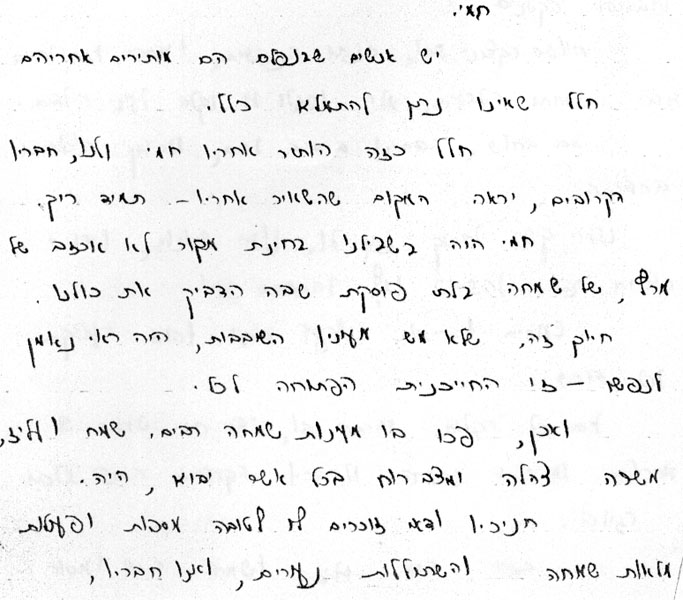 חמי.
יש אנשים שבנפלם הם מותירים אחריהם
חלל שאינו ניתן להתמלא כלל.
חלל כזה הותר אחריו חמי ולנו, חבריו
הקרובים, יראה המקום שהשאיר אחריו – תמיד ריק.
חמי היה בשבילנו בחינת מקור לא אכזב של
מרץ, של שמחה בלתי פוסקת שבה הדביק את כולנו.
חיוך זה, שלא מש מעינין השובבות, היה ראי נאמן
לנפשו – זו החייכנית הפתוחה לכל.
ואכן, פכו בו מעינות שמחה רבים. שמח ועליז,
משרה צהלה ומצב רוח בכל אשר יבוא, היה.
חניכיו ודאי זוכרים לו לטובה מסיבות ופעולות
מלאות שמחה והשתוללות נעורים, ואנו חבריו,